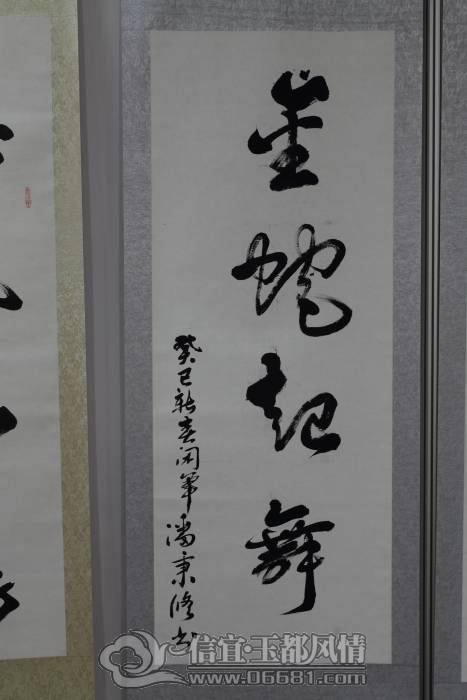 金蛇起舞
癸巳新春闲笔潘秉修书
信宜·玉都风情
www.06681.com